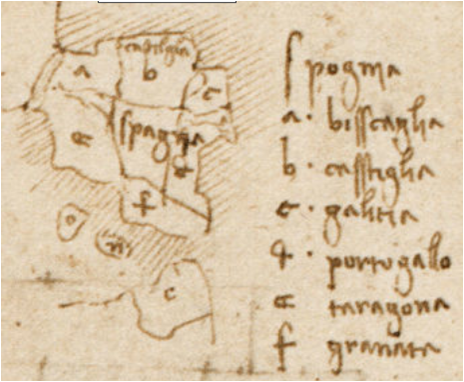 casstiglia
a b c
Spagna
e d
f
o m
c
Spagna
a · bisscaglia
b · casstiglia
c · galitia
d · portogallo
e taragona
f granata